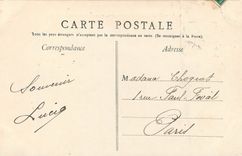 CARTE POSTALE
Tous les pays étrangers n'acceptent pas la correspondance au recto. (Se renseigner à la Poste).
Correspondance
Adresse
Souvenir
Lucie
Madame
1 rue Paul Féval
Paris